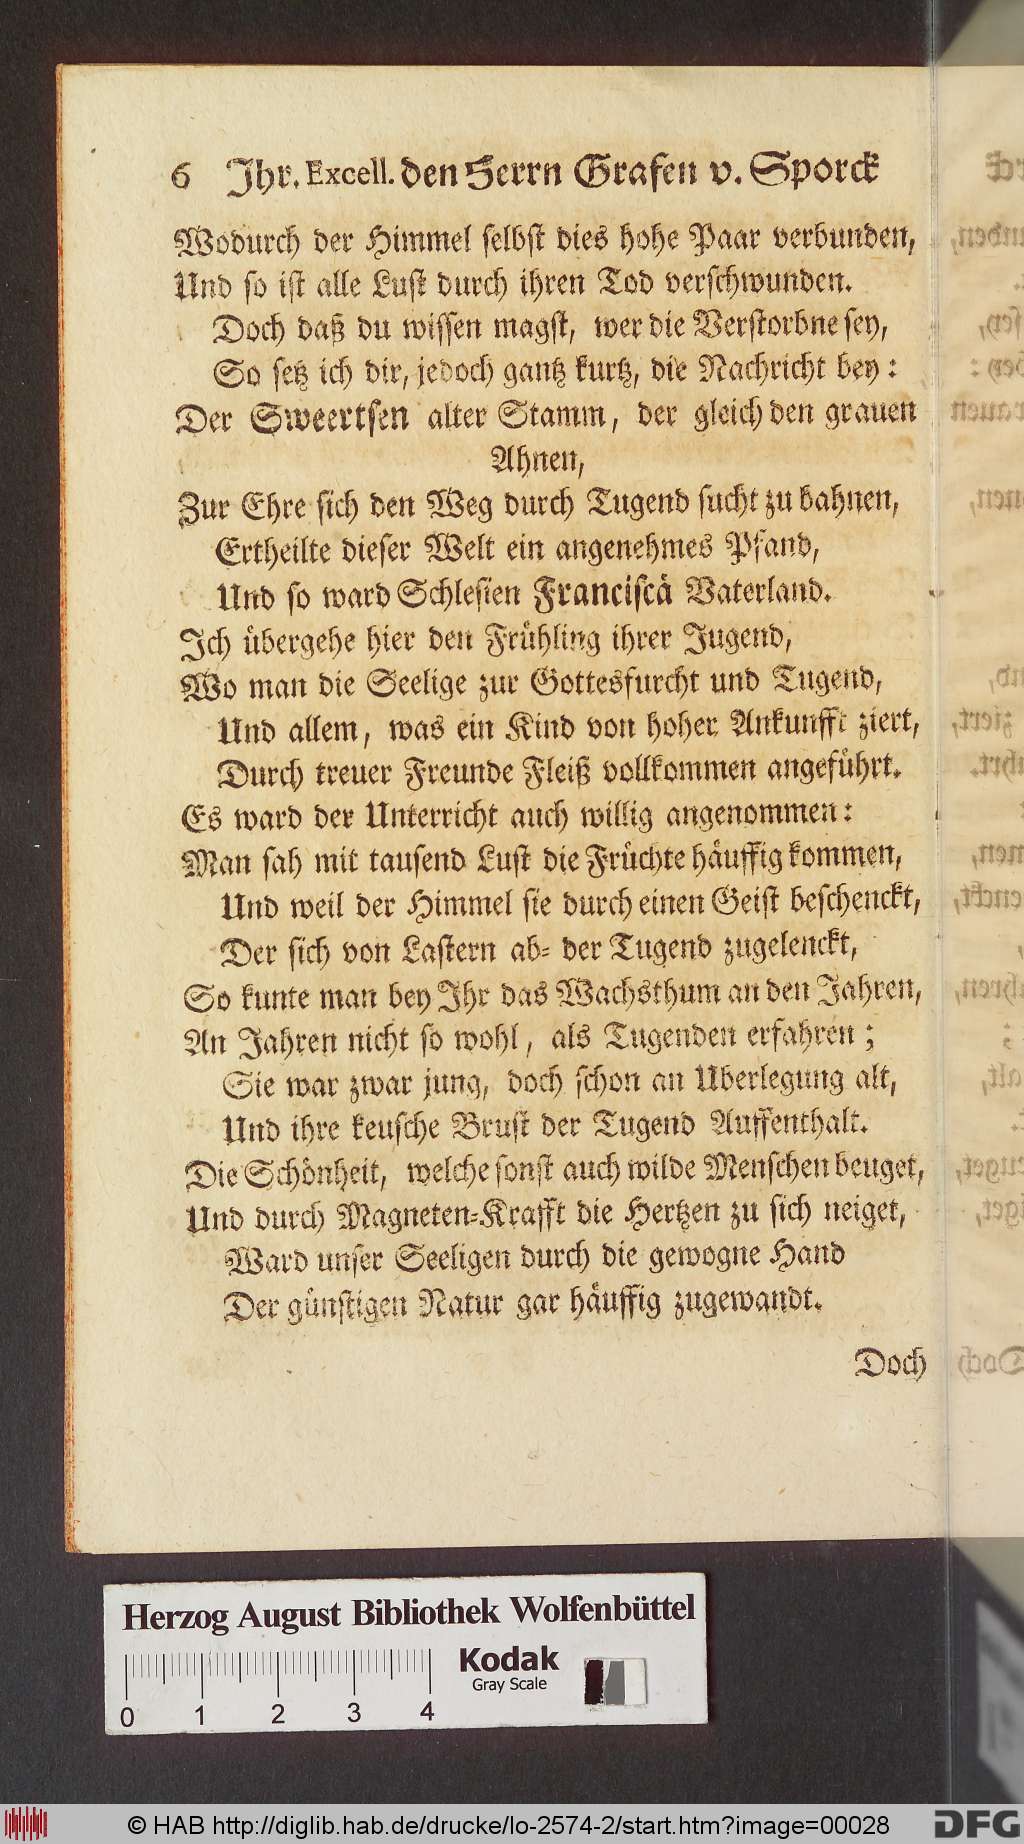 6 Ihr. Excell. den Herrn Grafen v. Sporck
Wodurch der Himmel selbst dies hohe Paar verbunden,
Und so ist alle Lust durch ihren Tod verschwunden.
Doch daß du wissen magst, wer die Verstorbne sey,
So setz ich dir, jedoch gantz kurtz, die Nachricht bey:
Der Sweertsen alter Stamm, der gleich den grauen
Ahnen,
Zur Ehre sich den Weg durch Tugend sucht zu bahnen,
Ertheilte dieser Welt ein angenehmes Pfand,
Und so ward Schlesien Franciscä Vaterland.
Ich übergehe hier den Frühling ihrer Jugend,
Wo man die Seelige zur Gottesfurcht und Tugend,
Und allem, was ein Kind von hoher Ankunfft ziert,
Durch treuer Freunde Fleiß vollkommen angeführt.
Es ward der Unterricht auch willig angenommen:
Man sah mit tausend Lust die Früchte häuffig kommen,
Und weil der Himmel sie durch einen Geist beschenckt,
Der sich von Lastern ab- der Tugend zugelenckt,
So kunte man bey Ihr das Wachsthum an den Jahren,
An Jahren nicht so wohl, als Tugenden erfahren;
Sie war zwar jung, doch schon an Uberlegung alt,
Und ihre keusche Brust der Tugend Auffenthalt.
Die Schönheit, welche sonst auch wilde Menschen beuget,
Und durch Magneten-Krafft die Hertzen zu sich neiget,
Ward unser Seeligen durch die gewogne Hand
Der günstigen Natur gar häuffig zugewandt.
Doch
Herzog August Bibliothek Wolfenbüttel
Kodak
Gray Scale
0 1 2 3 4
© HAB http://diglib.hab.de/drucke/lo-2574-2/start.htm?image=00028
DFG